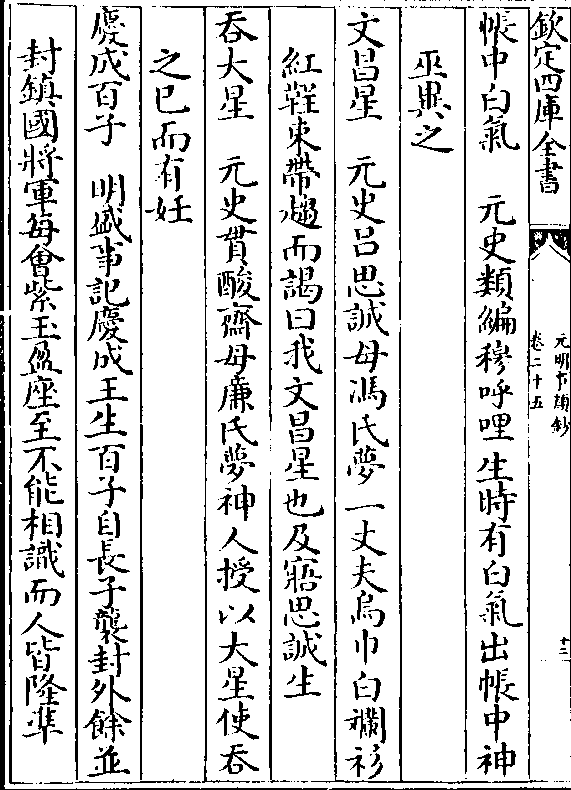 欽定四庫全書
元明事類鈔
卷二十五
十三
帳中白氣　元史類編穆呼哩生時有白氣出帳中神
巫異之
文昌星　元史吕思誠母馮氏夢一丈夫烏巾白襴衫
紅鞓束帶趨而謁曰我文昌星也及寤思誠生
吞大星　元史貫酸齋母廉氏夢神人授以大星使吞
之已而有妊
慶成百子　明盛事記慶成王生百子自長子襲封外餘並
封鎮國將軍每會紫玉盈座至不能相識而人皆隆準